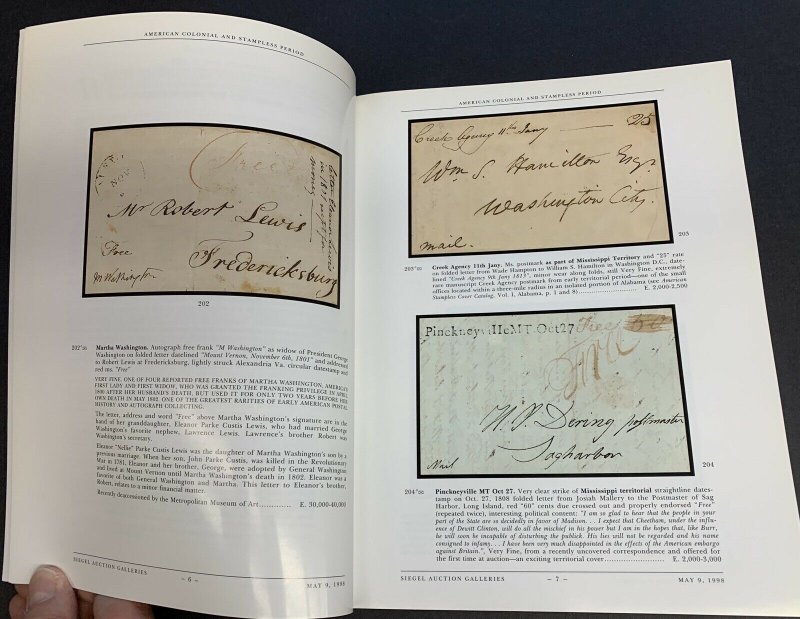 AMERICAN COLONIAL AND STAMPLESS PERIOD
NOV
Free
Mr Robert Lewis
Free
Fredericksburg
M Washington
202
202°⊠ Martha Washington. Autograph free frank "M Washington" as widow of President George
Washington on folded letter datelined "Mount Vernon, November 6th, 1801" and addressed
to Robert Lewis at Fredericksburg, lightly struck Alexandria Va. circular datestamp and
red ms. "Free"
VERY FINE. ONE OF FOUR REPORTED FREE FRANKS OF MARTHA WASHINGTON, AMERICA'S
FIRST LADY AND FIRST WIDOW, WHO WAS GRANTED THE FRANKING PRIVILEGE IN APRIL
1800 AFTER HER HUSBAND'S DEATH, BUT USED IT FOR ONLY TWO YEARS BEFORE HER
OWN DEATH IN MAY 1802. ONE OF THE GREATEST RARITIES OF EARLY AMERICAN POSTAL
HISTORY AND AUTOGRAPH COLLECTING.
The letter, address and word "Free" above Martha Washington's signature are in the
hand of her granddaughter, Eleanor Parke Custis Lewis, who had married George
Washington's favorite nephew, Lawrence Lewis. Lawrence's brother Robert was
Washington's secretary.
Eleanor "Nellie" Parke Custis Lewis was the daughter of Martha Washington's son by a
previous marriage. When her son, John Parke Custis, was killed in the Revolutionary
War in 1781, Eleanor and her brother, George, were adopted by General Washington
and lived at Mount Vernon until Martha Washington's death in 1802. Eleanor was a
favorite of both General Washington and Martha. This letter to Eleanor's brother,
Robert, relates to a minor financial matter.
Recently deaccessioned by the Metropolitan Museum of Art.............. E. 30,000-40,000
SIEGEL AUCTION GALLERIES
– 6 –
MAY 9, 1998
AMERICAN COLONIAL AND STAMPLESS PERIOD
Creek Agency 11th Jany
25
Wm S. Hamilton Esqr.
Washington City.
mail.
203
203°⊠ Creek Agency 11th Jany. Ms. postmark as part of Mississippi Territory and "25" rate
on folded letter from Wade Hampton to William S. Hamilton in Washington D.C., date-
lined "Creek Agency 9th Jany 1813", minor wear along folds, still Very Fine, extremely
rare manuscript Creek Agency postmark from early territorial period—one of the small
offices located within a three-mile radius in an isolated portion of Alabama (see American
Stampless Cover Catalog, Vol. I, Alabama, p. 1 and 8)............................ E. 2,000-2,500
Pinckneyville MT. Oct 27
Free
Free
H. P. Dering postmaster
Sagharbor
Mail
204
204°⊠ Pinckneyville MT Oct 27. Very clear strike of Mississippi territorial straightline dates-
tamp on Oct. 27, 1808 folded letter from Josiah Mallery to the Postmaster of Sag
Harbor, Long Island, red "60" cents due crossed out and properly endorsed "Free"
(repeated twice), interesting political content: "I am so glad to hear that the people in your
part of the State are so decidedly in favor of Madison. . . I expect that Cheetham, under the influ-
ence of Dewitt Clinton, will do all the mischief in his power but I am in the hopes that, like Burr,
he will soon be incapable of disturbing the publick. His lies will not be regarded and his name
consigned to infamy. . . I have been very much disappointed in the effects of the American embargo
against Britain.", Very Fine, from a recently uncovered correspondence and offered for
the first time at auction—an exciting territorial cover................... E. 2,000-3,000
SIEGEL AUCTION GALLERIES
– 7 –
MAY 9, 1998